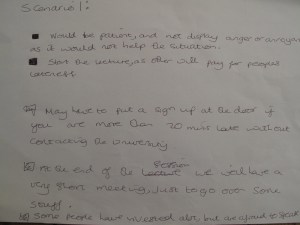 Scenario 1:
Would be patient, and not display anger or
as it would not help the situation.
Start the lecture, as other will pay for people
lateness
May have to put a sign up at the door if
you are more than 20 mins late without
contacting the university
At the end of the lecture we will have a
very short meeting, just to go over some
stuff.
Some people have invested alot, but are afraid to speak